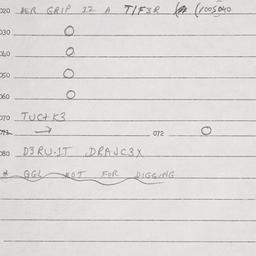 020 PER GRIP 12 A T/F3R
030 O
060 O
050 O
060 O
070 TUCTK3
072 → 072 O
080 D3RU-1T DRAJC3X
* QGL NOT FOR DIGGING